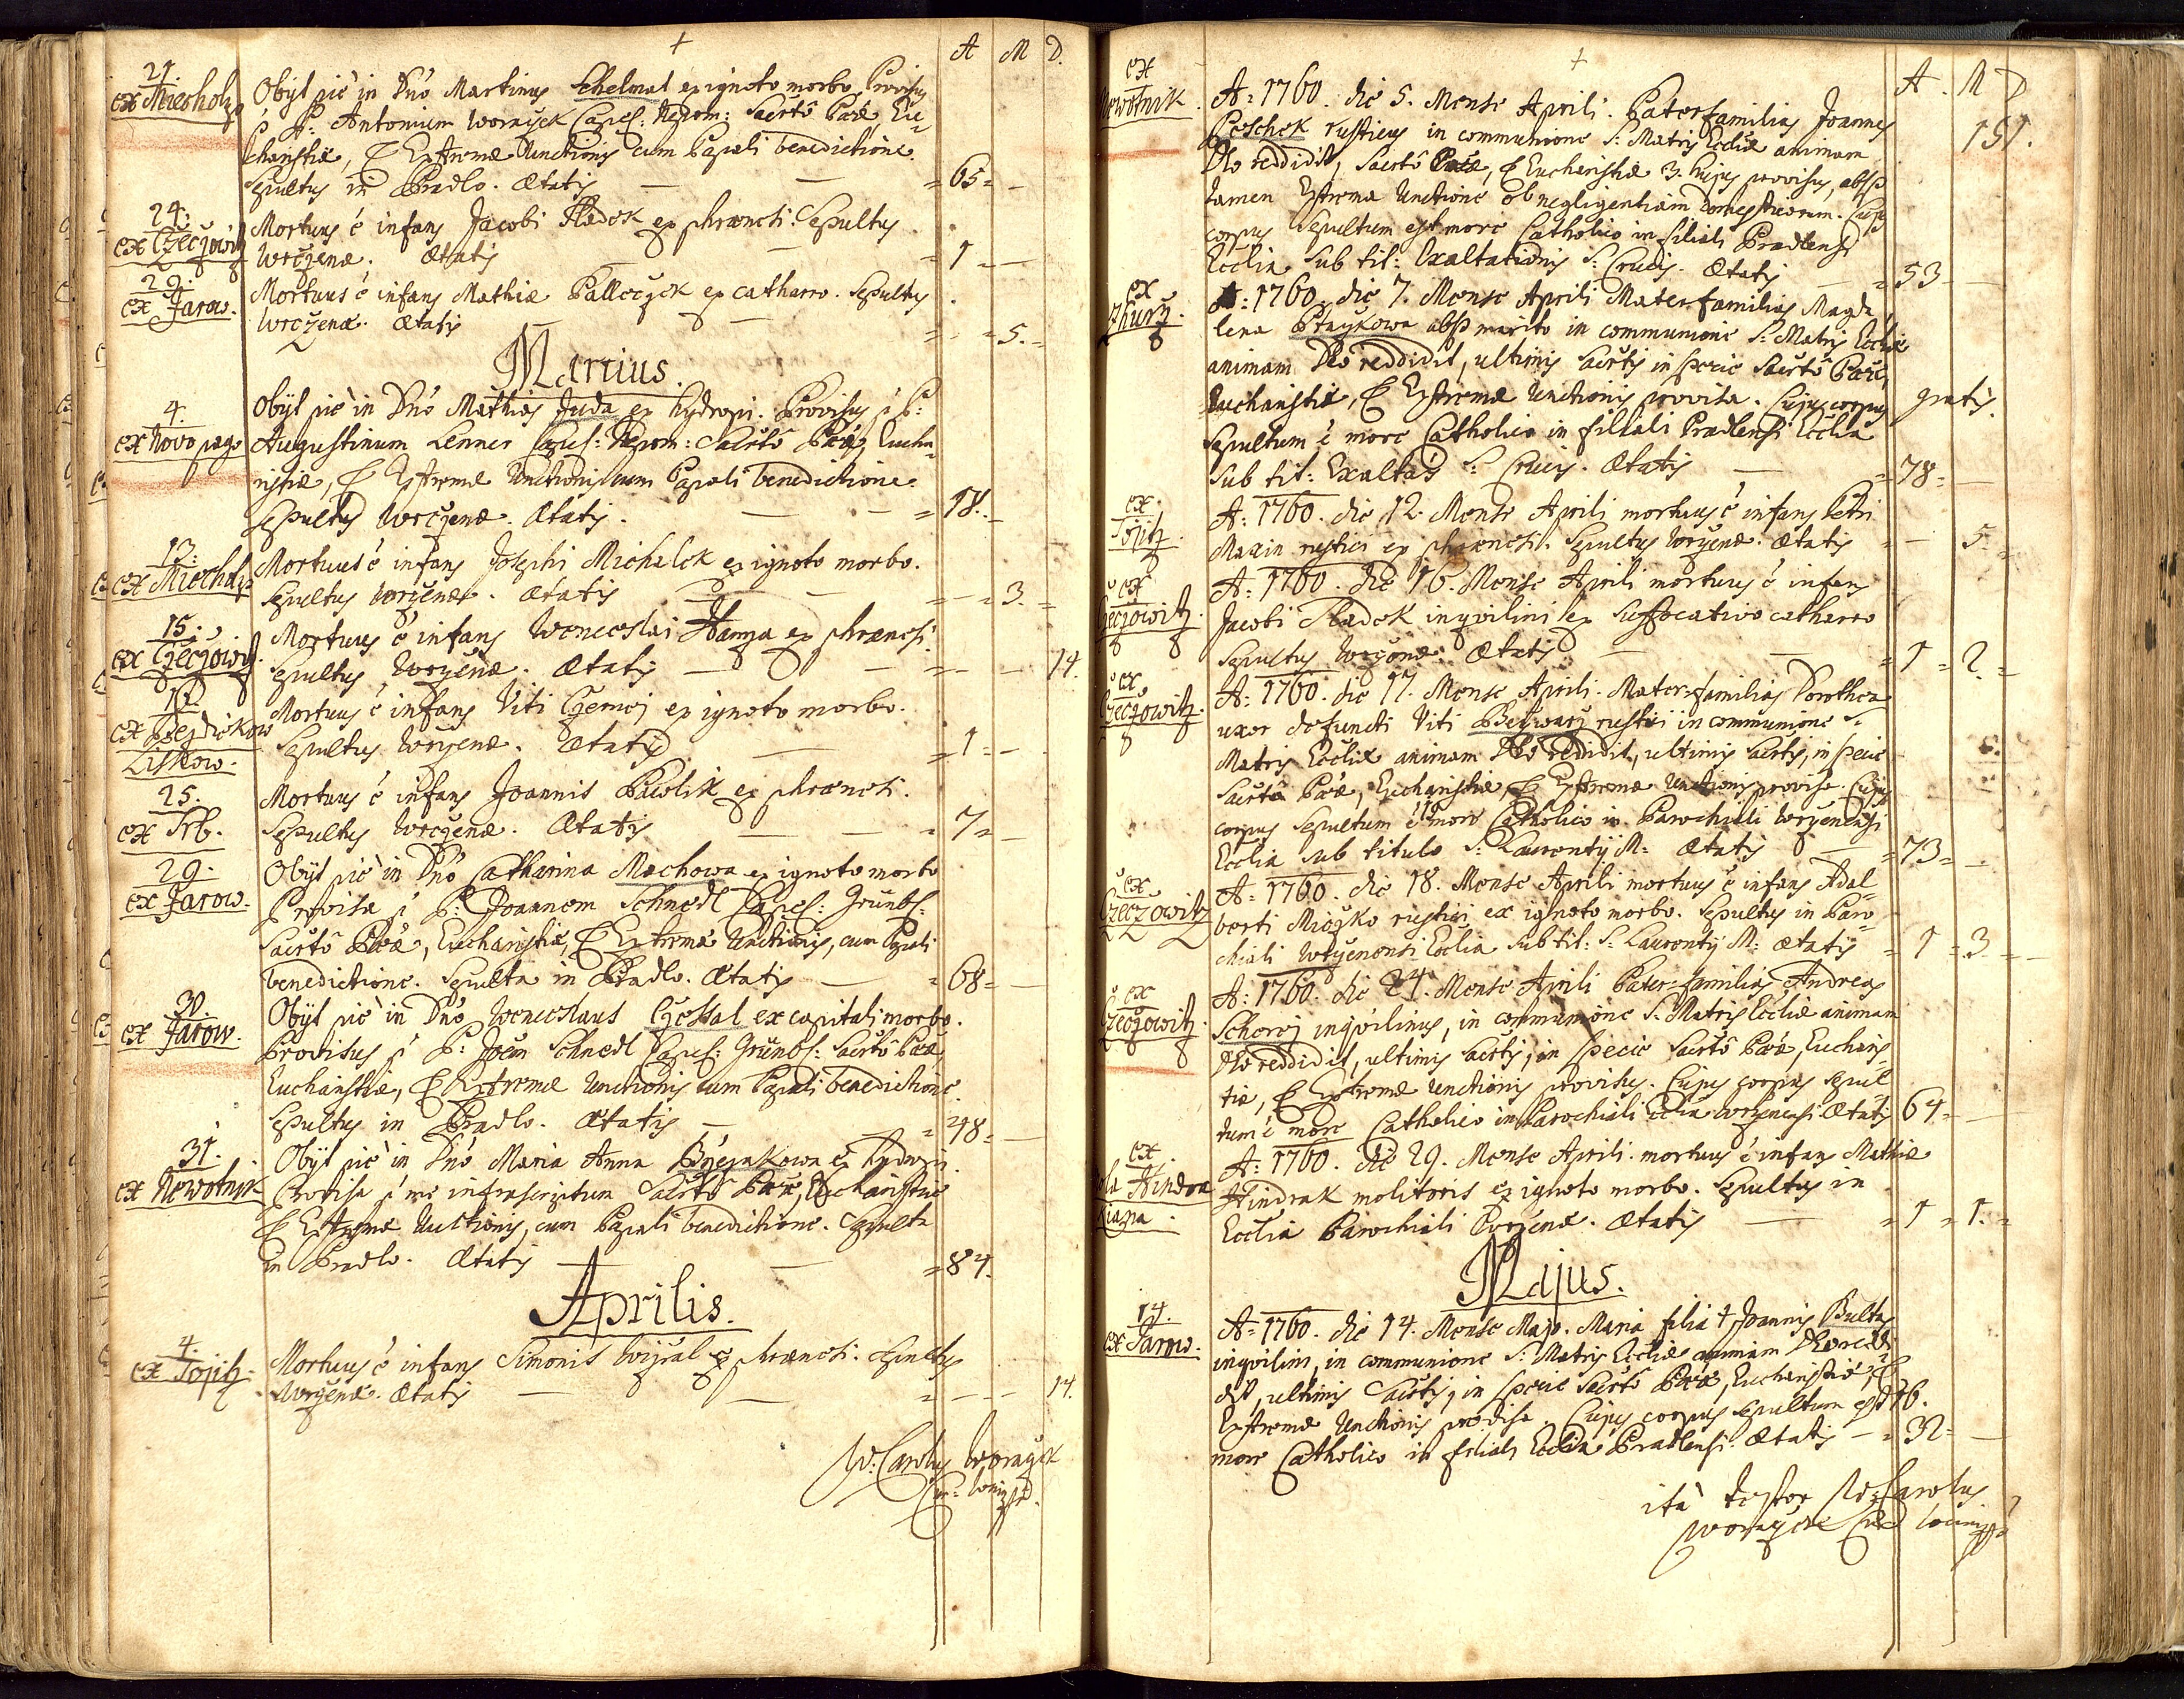 A M D.
21.
ex Miecholz
Obijt pie in Dno Martinus Schelmat ex ignoto morbo, Provisus
P. Antonium Woraczek Capel: Nepom: Sacrto Pae, Eu-
charistiae, & Extremae Unctionis cum Papali benedictione.
Sepultus in Pradlo. Aetatis — — = 65 = —
24.
ex Czeczowitz
Mortuus e infans Jacobi Sladek ex phraenesi. Sepultus
Wrczenae. Aetatis — = 1 = —
29.
ex Jarow.
Mortuus e infans Mathiae Palleczek ex catharro. Sepultus
Wrczenae. Aetatis — — = — = 5. =
Martius.
4.
ex Novo pago
Obijt pie in Dno Mathias Juda ex hydropi. Provisus P:
Augustinum Lenner Capel: Nepom: Sacrto Pae, Eucha-
ristiae, & Extremae Unctionis cum Papali benedictione.
Sepultus Wrczenae. Aetatis. — — = 18. =
13.
ex Miecholz
Mortuus e infans Josephi Michalek ex ignoto morbo.
Sepultus Wrczenae. Aetatis — — = — = 3. =
15.
ex Czeczowitz.
Mortuus e infans Wenceslai Hamza ex phraenesi.
Sepultus Wrczenae. Aetatis — — = — — 14.
ex
Liskow.
Mortuus e infans Viti Czerney ex ignoto morbo.
Sepultus Wrczenae. Aetatis — = 1 = —
25.
ex Srb.
Mortuus e infans Joannis Pawlik ex phraenesi.
Sepultus Wrczenae. Aetatis — — = 7 = —
29.
ex Jarow.
Obijt pie in Dno Catharina Machowa ex ignoto morbo
Provisa P: Joannem Schnedl Capel: Grünb:
Sacrto Pae, Eucharistiae, & Extremae Unctionis, cum Papali
benedictione. Sepulta in Pradlo. Aetatis — = 68 = —
30.
ex Jarow.
Obijt pie in Dno Wenceslaus Czessal ex capitali morbo.
Provisus P: Joan Schnedl Capel: Grünb: Sacrto Pae
Eucharistiae, & Extremae Unctionis cum Papali benedictione.
Sepultus in Pradlo. Aetatis — — = 48 = —
31.
ex Newotnik
Obijt pie in Dno Maria Anna Brzezakowa ex hydropi.
Provisa me infrascriptum Sacrto Pae, Eucharistiae
& Extremae Unctionis, cum Papali benedictione. Sepulta
in Pradlo. Aetatis — — = 84.
Aprilis.
4.
ex Tojitz.
Mortuus e infans Simonis Wizral ex phraenesi. Sepultus
Wrczenae. Aetatis — — = — — 14.
W: Carolus Woraczek
A. M D
151.
ex
Newotnik.
A: 1760. die 5. Mense Aprili. Paterfamilias Joannes
Peschek rusticus in communione S: Matris Eccliae animam
Deo reddidit, Sacrto Pae, & Eucharistiae 3. hujus provisus, absq
tamen Extrema Unctione ob negligentiam domesticorum. Cujus
corpus sepultum est more Catholico in filiali Pradlensi
Ecclia sub tit: Exaltationis S: Crucis. Aetatis — = 53 —
ex
Zhurz.
A: 1760. die 7. Mense Aprili Materfamilias Magda-
lena Ptaczkowa absq marito in communione S: Matris Eccliae
animam Deo reddidit, ultimis Sacrtis in specie Sacrto Pae,
Eucharistiae, & Extremae Unctionis provisa. Cujus corpus gratis.
Sepultum e more Catholico in filiali Pradlensi Ecclia
sub tit: Exaltaõs S: Crucis. Aetatis — = 78 = —
ex
Tojitz.
A: 1760. die 12. Mense Aprili mortuus e infans Petri
Maxin rustici ex phraenesi. Sepultus Wrczenae. Aetatis = — 5. =
ex
Czeczowitz.
A: 1760. die 16. Mense Aprili mortuus e infans
Jacobi Sladek inqvilini ex suffocativo catharro
Sepultus Wrczenae. Aetatis — — = 1 = 2. =
ex
Czeczowitz.
A: 1760. die 17. Mense Aprili. Mater-familias Dorothea
uxor defuncti Viti Betzwarz rustici in communione S.
Matris Eccliae animam Deo reddidit, ultimis Sacrtis, in specie
Sacrto Pae, Eucharistiae, & Extremae Unctionis provisa. Cujus
corpus Sepultum e more Catholico in Parochiali Wrczenensi
Ecclia sub titulo S: Laurentij M: Aetatis — = 73 = —
ex
Czeczowitz
A: 1760. die 18. Mense Aprili mortuus e infans Adal-
berti Miczko rustici ex ignoto morbo. Sepultus in Paro-
chiali Wrczenensi Ecclia sub tit: S: Laurentij M: Aetatis = 1 = 3. =
ex
Czeczowitz.
A: 1760. die 24. Mense Aprili Pater-familias Andreas
Scherej inqvilinus, in communione S: Matris Eccliae animam
Deo reddidit, ultimis Sacrtis, in specie Sacrto Pae, Eucharis-
tiae, & Extremae Unctionis provisus. Cujus corpus sepul-
tum e more Catholico in Parochiali Ecclia Wrczenensi Aetatis 64 = —
ex
Mola Hindra
kiana.
A: 1760. die 29. Mense Aprili mortuus e infans Mathiae
Hindrak molitoris ex ignoto morbo. Sepultus in
Ecclia Parochiali Wrczenae. Aetatis — = 1 = 1. =
Majus.
14.
ex Jarow.
A: 1760. die 14. Mense Majo. Maria filia † Joannis Bultas
inqvilini, in communione S: Matris Eccliae animam Deo reddi-
dit, ultimis Sacrtis, in specie Sacrto Pae, Eucharistiae, &
Extremae Unctionis provisa. Cujus corpus sepultum est
more Catholico in filiali Ecclia Pradlensi. Aetatis — = 32 = —
ità testor W: Carolus
Woraczek